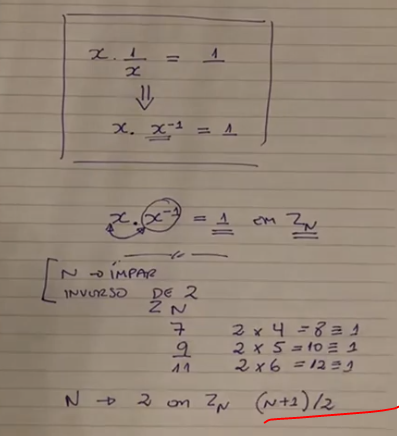 x · 1/x = 1
⇓
x · x⁻¹ = 1
x · x⁻¹ = 1 em Z_N
N → ÍMPAR
INVERSO DE 2
Z N
7 2 × 4 = 8 ≡ 1
9 2 × 5 = 10 ≡ 1
11 2 × 6 = 12 ≡ 1
N → 2 em Z_N (N+1)/2